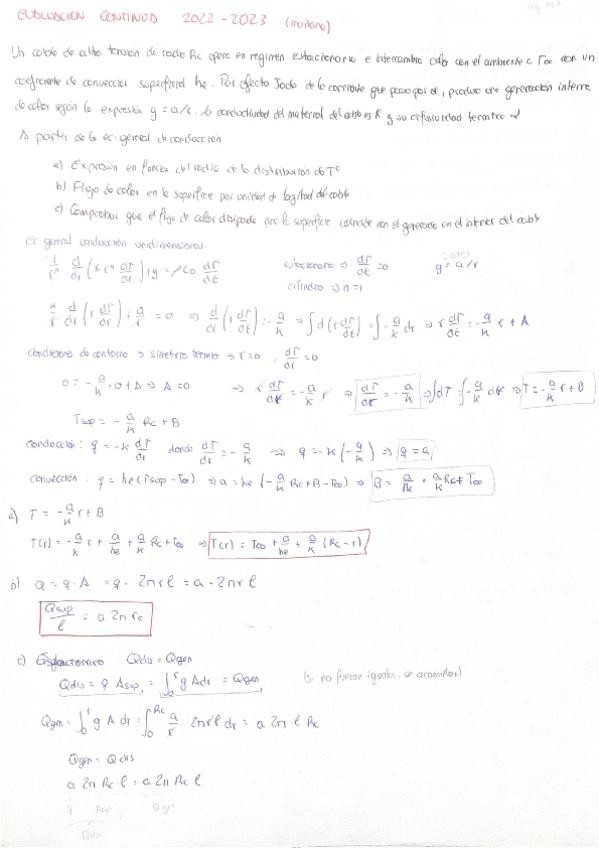 EVALUACION CONTINUA 2022-2023 (mañana)
Un cable de alta tensión de radio Rc opera en regimen estacionario e intercambia calor con el ambiente a T∞ con un
coeficiente de convección superficial he. Por efecto Joule de la corriente que pasa por el, produce una generación interna
de calor según la expresión g = a/r. La conductividad del material del cable es K y su difusividad termica α
A partir de la ec. general de conducción
a) Expresión en función del radio de la distribución de Tº
b) Flujo de calor en la superficie por unidad de longitud del cable
c) Comprobar que el flujo de calor disipado por la superficie coincide con el generado en el interior del cable
Ec general conducción unidimensional:
1/rⁿ d/dr (K rⁿ dT/dr) + g = ρ Cp dT/dt estacionario ⇒ dT/dt = 0 g = a/r
cilindro ⇒ n=1
K/r d/dr (r dT/dr) + a/r = 0 ⇒ d/dr (r dT/dr) = -a/k ⇒ ∫d(r dT/dt) = ∫-a/k dr ⇒ r dT/dt = -a/k r + A
Condiciones de contorno → simetria termica → r=0, dT/dr = 0
0 = -a/k · 0 + A ⇒ A=0 → r dT/dr = -a/k r ⇒ dT/dr = -a/k ⇒ ∫dT = ∫-a/k dr ⇒ T = -a/k r + B
Tsup = -a/k Rc + B
conducción: q = -k dT/dr donde dT/dr = -a/k ⇒ q = -k (-a/k) ⇒ q = a
convección: q = he (Tsup - T∞) ⇒ a = he (-a/k Rc + B - T∞) ⇒ B = a/he + a/k Rc + T∞
a) T = -a/k r + B
T(r) = -a/k r + a/he + a/k Rc + T∞ ⇒ T(r) = T∞ + a/he + a/k (Rc - r)
b) Q = q · A = q · 2πrl = a · 2πrl
Qsup/l = a 2π rc
c) Estacionario Qdis = Qgen
Qdis = q Asup = ∫₀ʳ g A dr = Qgen (si no fueran iguales
Qgen = ∫₀ʳ g A dr = ∫₀ᴿᶜ a/r 2πrl dr = a 2π · l Rc
Qgen = Qdis
a 2π Rc l = a 2π Rc l